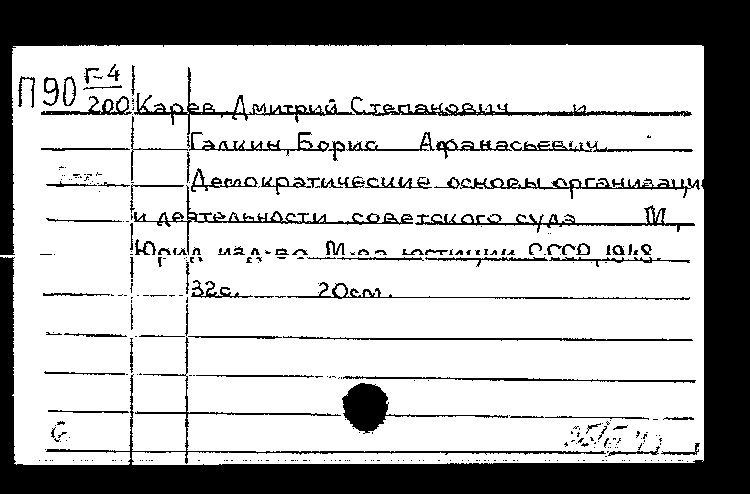 П90 Г-4
200 Карев, Дмитрий Степанович и
Галкин, Борис Афанасьевич.
Демократические основы организации
и деятельности советского суда М.,
Юрид. изд-во М-ва юстиции СССР, 1948.
32с. 20см.